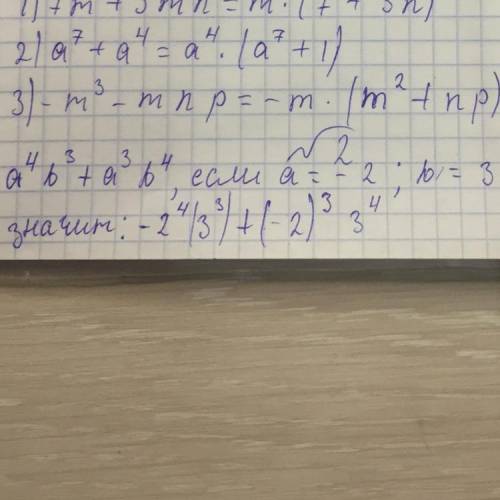 1) 7m + 3mn = m · (7 + 3n)
2) a⁷ + a⁴ = a⁴ · (a⁷ + 1)
3) - m³ - m n p = - m · (m² + np)
2
a⁴b³ + a³b⁴, если a = - 2 ; b = 3
значит: - 2⁴(3³) + (-2)³ 3⁴